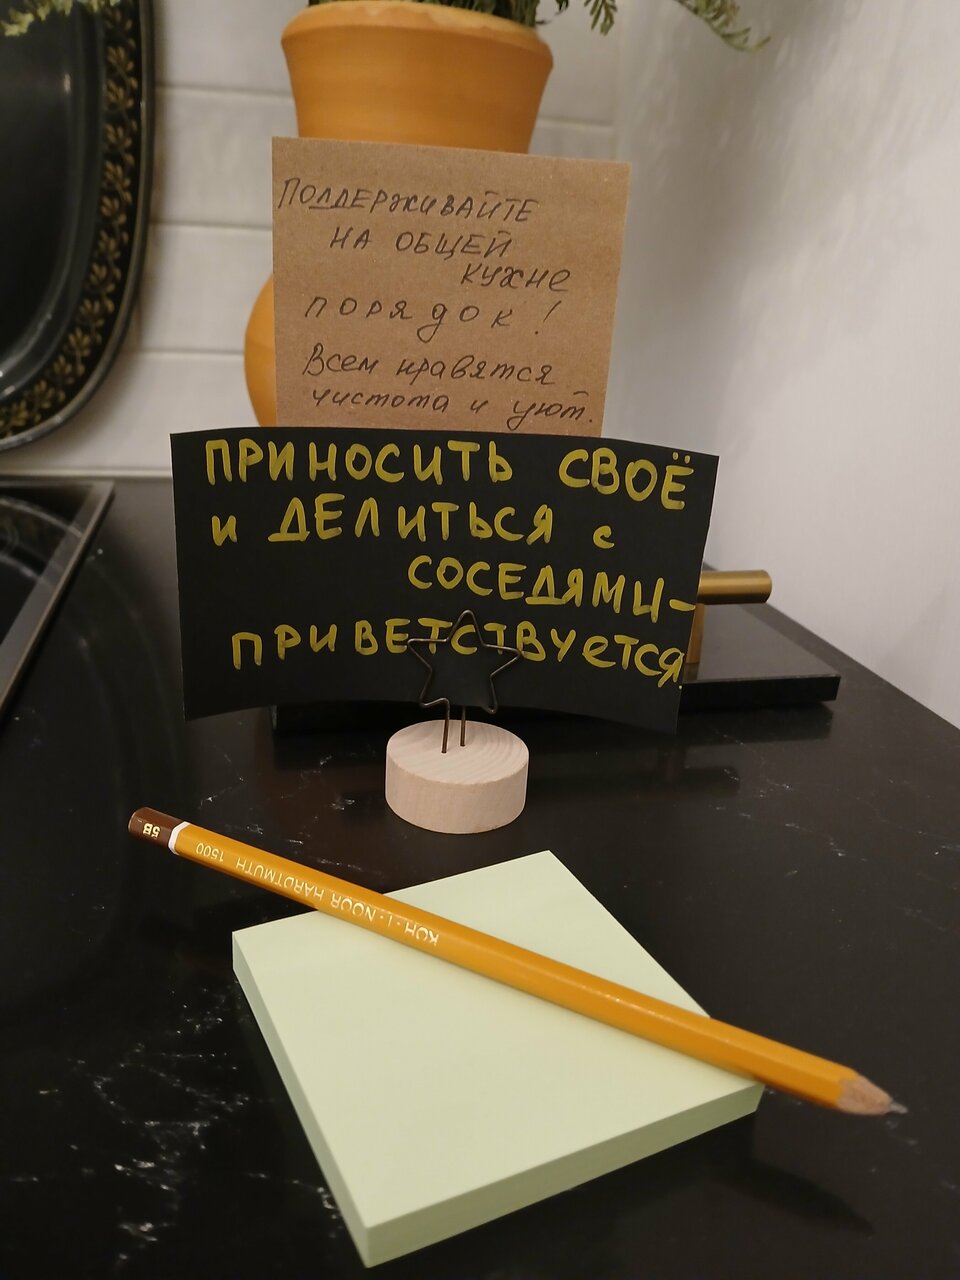 ПОДДЕРЖИВАЙТЕ
НА ОБЩЕЙ
КУХНЕ
ПОРЯДОК!
Всем нравятся
чистота и уют.
ПРИНОСИТЬ СВОЁ
и ДЕЛИТЬСЯ с
СОСЕДЯМИ-
ПРИВЕТСТВУЕТСЯ.
KOH-I-NOOR HARDTMUTH 1500
5B